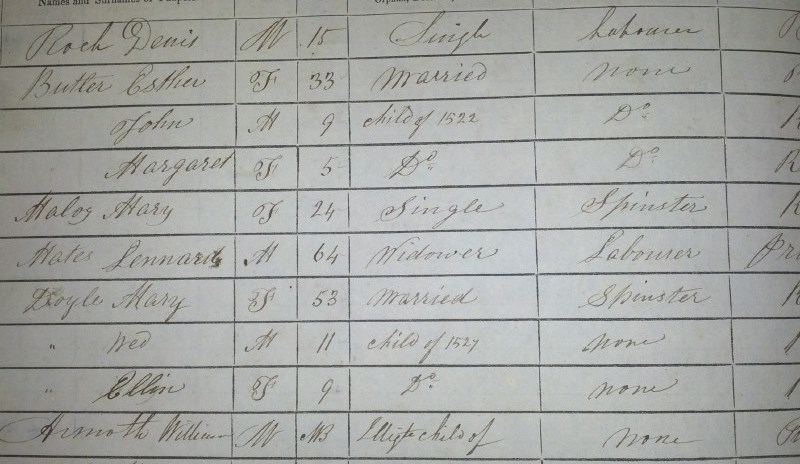 Names and Surnames of
Roch Denis M 15 Single Labourer
Butler Esther F 33 Married none
John M 9 child of 1522 Do
Margaret F 5 Do Do
Maloy Mary F 24 Single Spinster
Mates Lennard M 64 Widower Labourer
Doyle Mary F 53 Married Spinster
" Wed M 11 child of 1527 none
" Ellin F 9 Do none
William M child of none